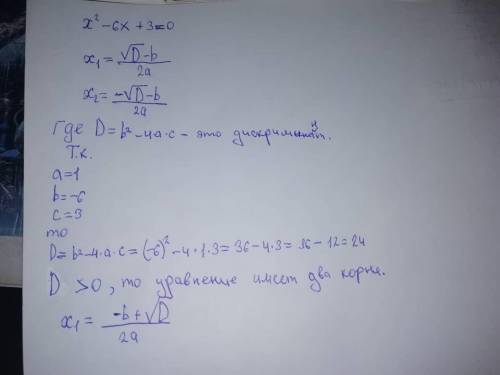 x² - 6x + 3 = 0
x₁ = (√D - b) / 2a
x₂ = (-√D - b) / 2a
Где D = b² - 4a·c - это дискриминант.
Т.к.
a = 1
b = -6
c = 3
то
D = b² - 4·a·c = (-6)² - 4·1·3 = 36 - 4·3 = 36 - 12 = 24
D > 0, то уравнение имеет два корня.
x₁ = (-b + √D) / 2a